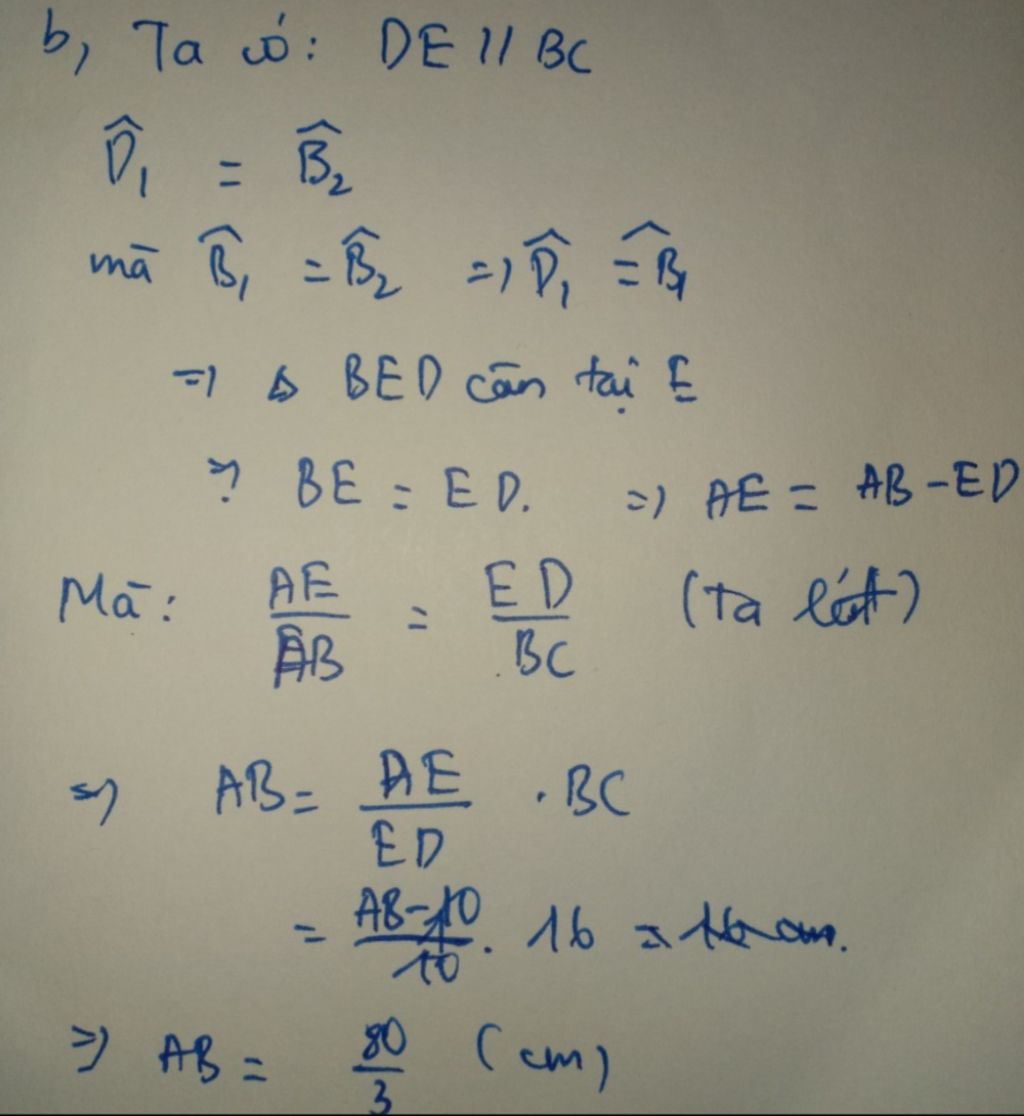 b, Ta có: DE // BC
D̂₁ = B̂₂
mà B̂₁ = B̂₂ => D̂₁ = B̂₁
=> Δ BED cân tại E
=> BE = ED. => AE = AB - ED
Mà: AE/AB = ED/BC (Ta lét)
=> AB = AE/ED . BC
= (AB - 10)/10 . 16 =
=> AB = 80/3 (cm)